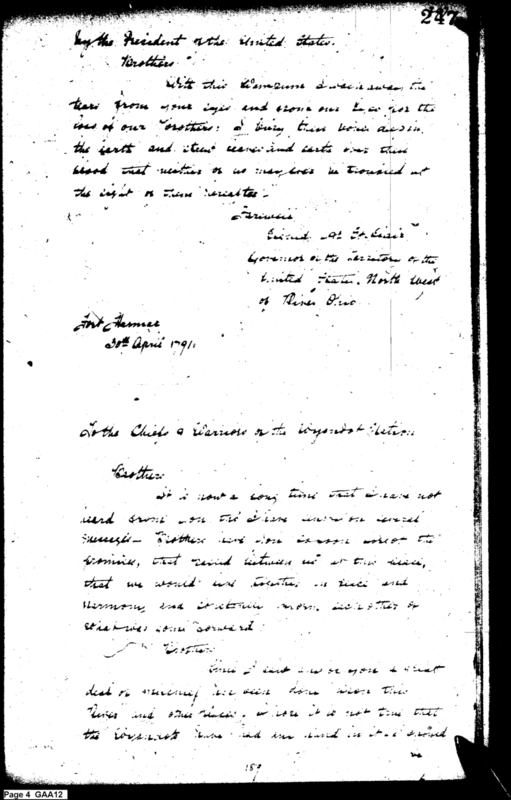 247
by the President of the United States.
Brothers
With this Wampum I wash away the
tears from your eyes and from our Eyes for the
loss of our Brothers: I bury their bodies deep in
the earth and strew leaves and earth over their
blood that neither of us may ever be troubled at
the sight of them hereafter.
Farewell
Signed, Ar. St. Clair
Governor of the Territory of the
United States, North West
of River Ohio
Fort Harmar
30th April 1791
To the Chiefs & Warriors of the Wyandot Nation
Brothers
It is now a long time that I have not
heard from you tho I have sent you several
messages. Brothers have you so soon forgot the
promises, that passed between us at this place,
that we would live together in peace and
Harmony, and constantly inform each other of
whatever came forward
Brothers
Since I last saw you a great
deal of mischief has been done upon this
River and other places. I hope it is not true that
the Wyandots have had any hand in it. I should
be
189
Page 4 GAA12